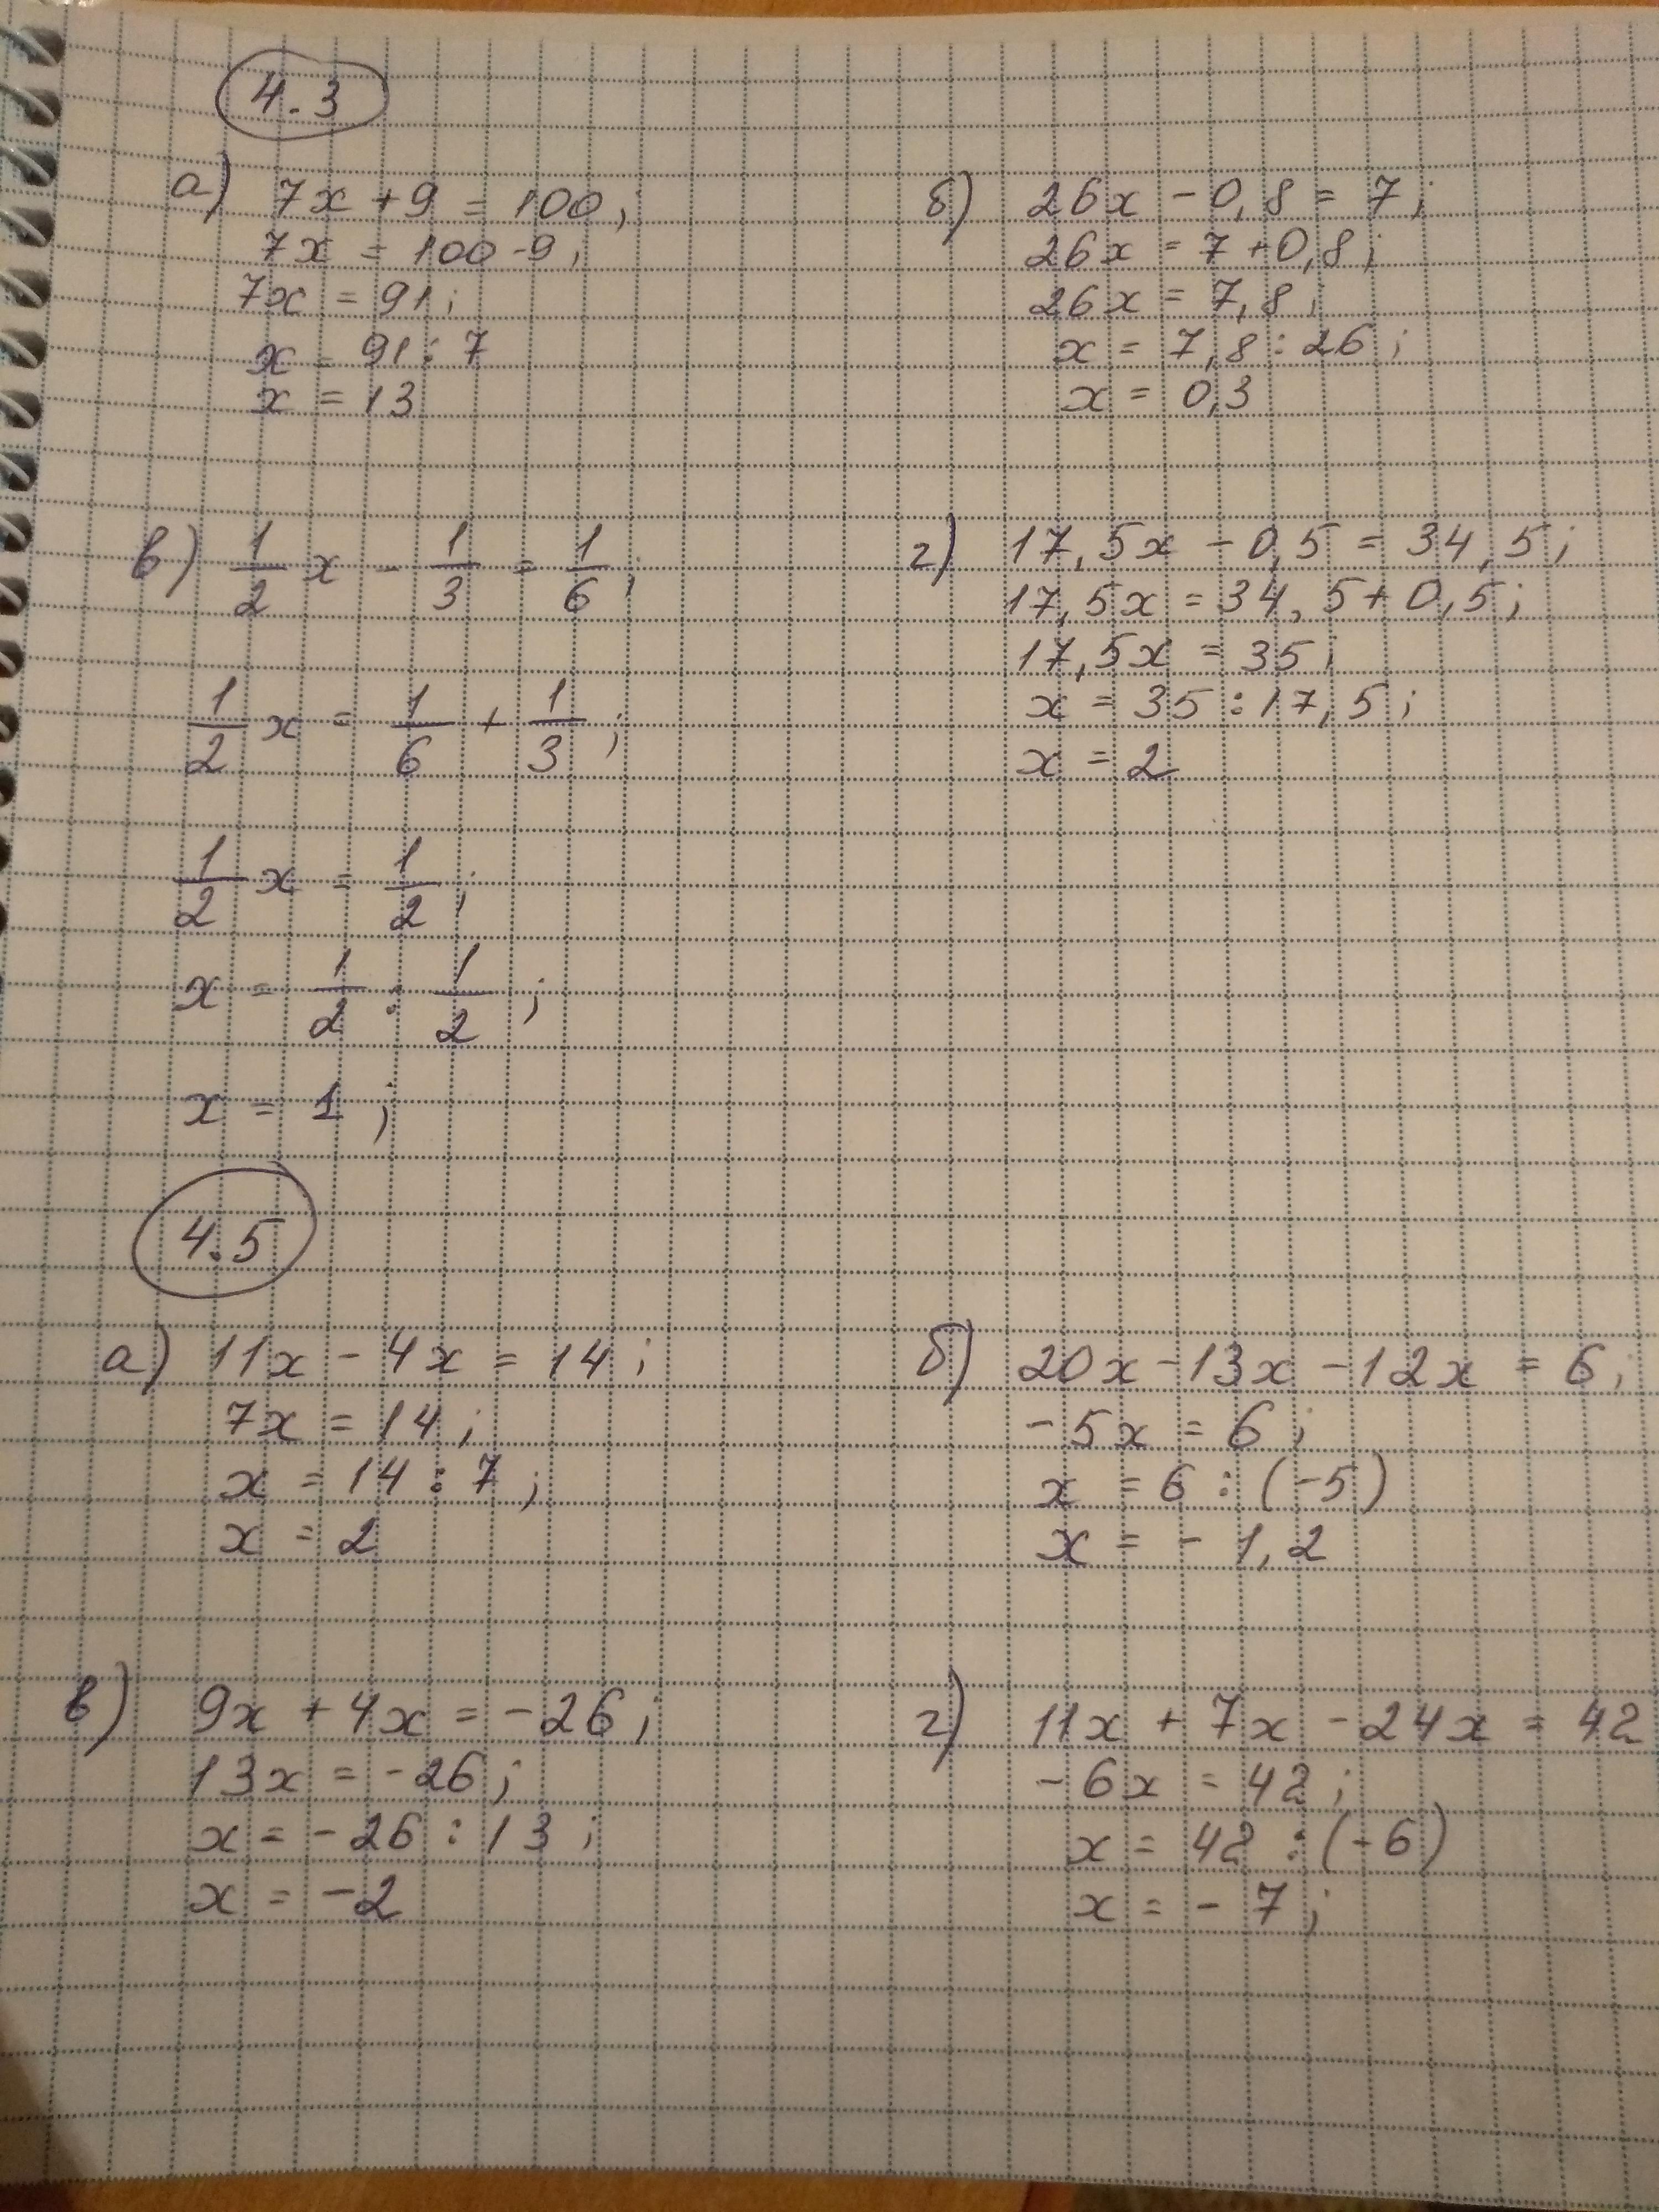 4.3
а) 7x + 9 = 100;
7x = 100 - 9;
7x = 91;
x = 91 : 7
x = 13
б) 26x - 0,8 = 7;
26x = 7 + 0,8;
26x = 7,8;
x = 7,8 : 26;
x = 0,3
в) 1/2 x - 1/3 = 1/6;
1/2 x = 1/6 + 1/3;
1/2 x = 1/2;
x = 1/2 : 1/2;
x = 1;
г) 17,5x - 0,5 = 34,5;
17,5x = 34,5 + 0,5;
17,5x = 35;
x = 35 : 17,5;
x = 2
4.5
а) 11x - 4x = 14;
7x = 14;
x = 14 : 7;
x = 2
б) 20x - 13x - 12x = 6;
-5x = 6;
x = 6 : (-5)
x = -1,2
в) 9x + 4x = -26;
13x = -26;
x = -26 : 13;
x = -2
г) 11x + 7x - 24x = 42
-6x = 42;
x = 42 : (-6)
x = -7;